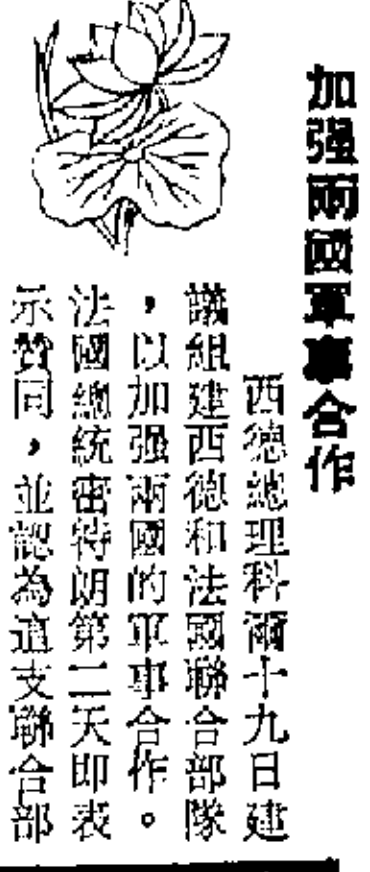 加强兩國軍事合作
西德總理科爾十九日建
議組建西德和法國聯合部隊
，以加强兩國的軍事合作。
法國總統密特朗第二天即表
示贊同，並認為這支聯合部